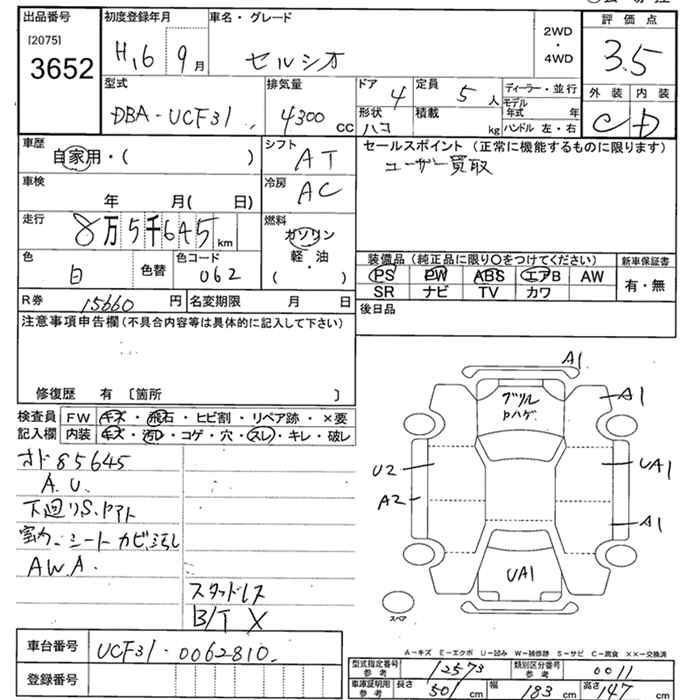 出品番号
[2075]
3652
初度登録年月
H16 9月
車名・グレード
セルシオ
2WD
・
4WD
評価点
3.5
型式
DBA-UCF31
排気量
4300 CC
ドア 4
形状 ハコ
定員 5 人
積載 kg
ディーラー・並行
モデル年式 年
ハンドル 左・右
外装 内装
C D
車歴
自家用・( )
シフト
AT
セールスポイント(正常に機能するものに限ります)
ユーザー買取
車検
年 月( 日)
冷房
AC
走行
8万5千645km
燃料
ガソリン
軽・油
( )
色
白
色替
色コード
062
装備品(純正品に限り○をつけてください)
新車保証書
PS PW ABS エアB AW
SR ナビ TV カワ
有・無
R券 15660 円
名変期限 月 日
後日品
注意事項申告欄(不具合内容等は具体的に記入して下さい)
修復歴 有 〔箇所 〕
検査員記入欄
FW キズ・飛石・ヒビ割・リペア跡・×要
内装 キズ・汚レ・コゲ・穴・スレ・キレ・破レ
オド85645
A.U.
下廻りS.ヤアト
シートカビ
A.W.A.
スタッドレス
B/T X
A1
グリル
ハゲ
A1
U2
UA1
A2
A1
UA1
スペア
A-キズ E-エクボ U-凹み W-補修跡 S-サビ C-腐食 XX-交換済
車台番号
UCF31-0062810
登録番号
型式指定番号 参考 12573
類別区分番号 参考 0011
車庫証明用 参考 長さ 501 cm 幅 183 cm 高さ 147 cm